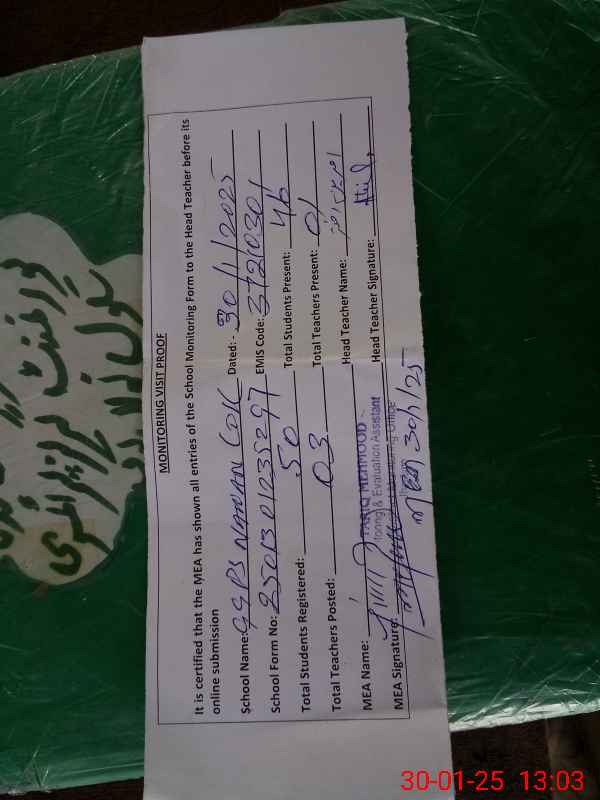 MONITORING VISIT PROOF
It is certified that the MEA has shown all entries of the School Monitoring Form to the Head Teacher before its
online submission
School Name: GGPS NAWAN Dated:- 30/1/2025
School Form No: 2501301235297 EMIS Code: 37210301
Total Students Registered: 50 Total Students Present: 46
Total Teachers Posted: 03 Total Teachers Present: 01
MEA Name: Head Teacher Name:
TARIQ MEHMOOD
toring & Evaluation Assistant
MEA Signature: Head Teacher Signature:
MEA 30/1/25
گورنمنٹ گرلز پرائمری
سکول
30-01-25 13:03